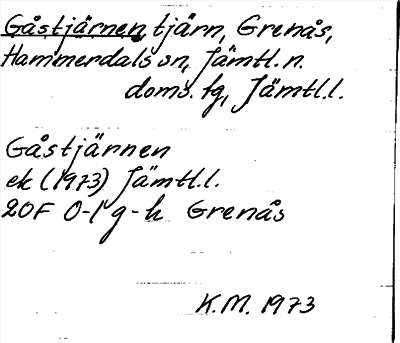 Gåstjärnen, tjärn, Grenås,
Hammerdals sn, Jämtl. n.
doms. tg, Jämtl.l.
Gåstjärnen
ek (1973) Jämtl.l.
20F 0-1 g-h Grenås
K.M. 1973